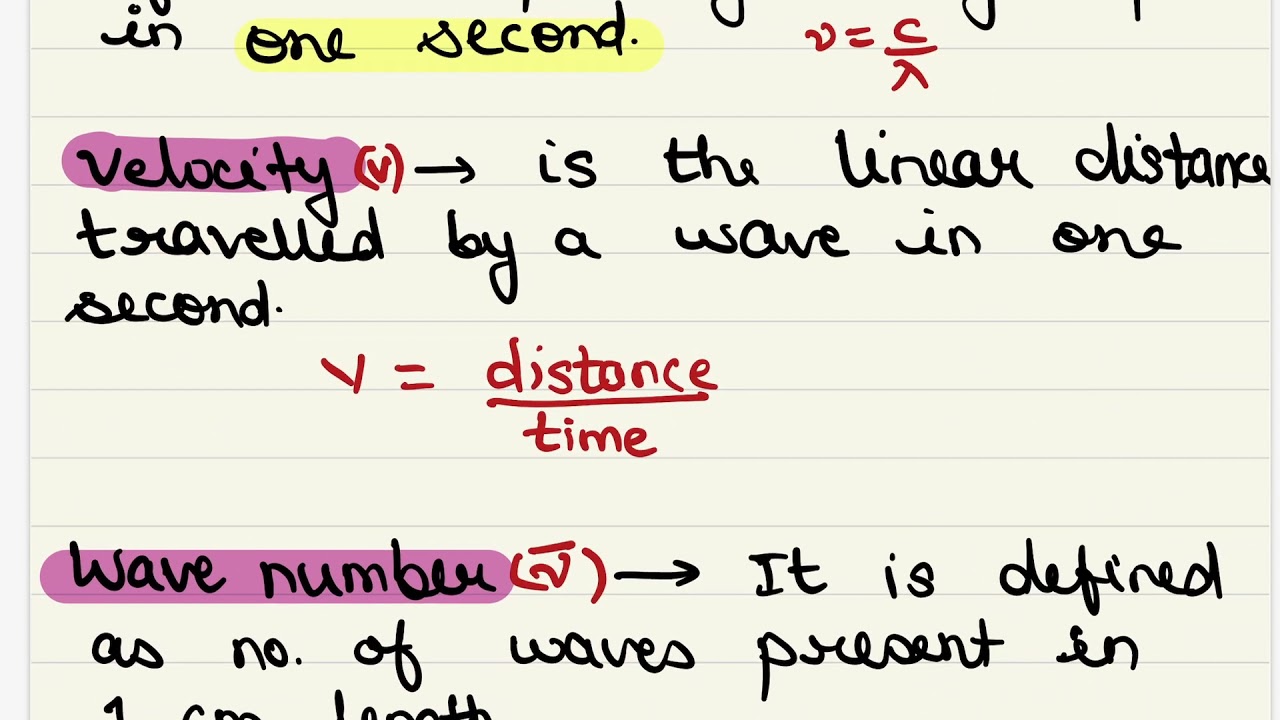 in one second. ν = c/λ
Velocity (v) → is the linear distance
travelled by a wave in one
second.
v = distance/time
Wave number (ν̅) → It is defined
as no. of waves present in
1 cm length